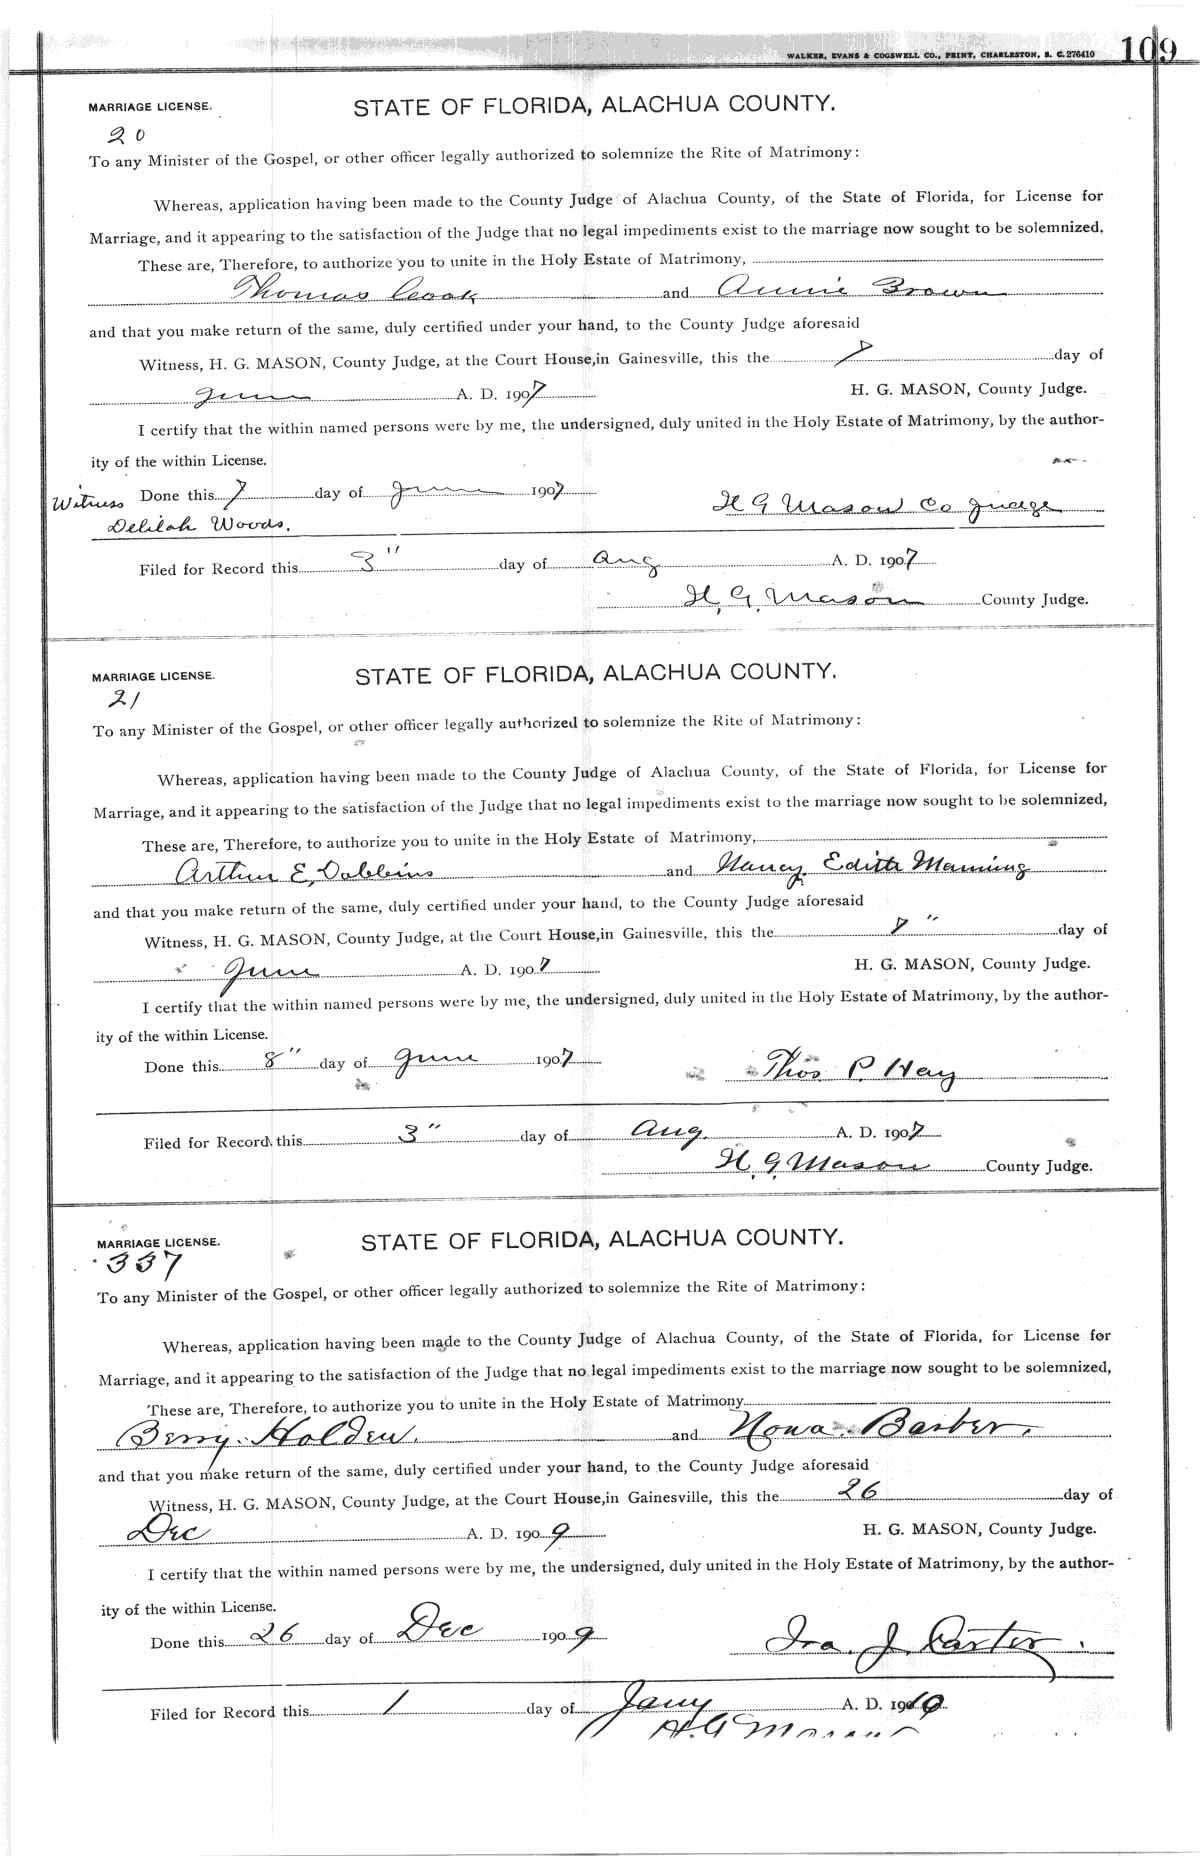 WALKER, EVANS & COGSWELL CO., PRINT, CHARLESTON, S. C. 276410 109
MARRIAGE LICENSE. STATE OF FLORIDA, ALACHUA COUNTY.
20
To any Minister of the Gospel, or other officer legally authorized to solemnize the Rite of Matrimony:
Whereas, application having been made to the County Judge of Alachua County, of the State of Florida, for License for
Marriage, and it appearing to the satisfaction of the Judge that no legal impediments exist to the marriage now sought to be solemnized,
These are, Therefore, to authorize you to unite in the Holy Estate of Matrimony,
Thomas Cook and Annie Brown
and that you make return of the same, duly certified under your hand, to the County Judge aforesaid
Witness, H. G. MASON, County Judge, at the Court House, in Gainesville, this the 7 day of
June A. D. 1907 H. G. MASON, County Judge.
I certify that the within named persons were by me, the undersigned, duly united in the Holy Estate of Matrimony, by the author-
ity of the within License.
Witness Done this 7 day of June 1907 H G Mason Co Judge
Delilah Woods.
Filed for Record this 3" day of Aug A. D. 1907
H. G. Mason County Judge.
MARRIAGE LICENSE. STATE OF FLORIDA, ALACHUA COUNTY.
21
To any Minister of the Gospel, or other officer legally authorized to solemnize the Rite of Matrimony:
Whereas, application having been made to the County Judge of Alachua County, of the State of Florida, for License for
Marriage, and it appearing to the satisfaction of the Judge that no legal impediments exist to the marriage now sought to be solemnized,
These are, Therefore, to authorize you to unite in the Holy Estate of Matrimony,
Arthur E. Dobbins and Nancy Edith Manning
and that you make return of the same, duly certified under your hand, to the County Judge aforesaid
Witness, H. G. MASON, County Judge, at the Court House, in Gainesville, this the 7" day of
June A. D. 1907 H. G. MASON, County Judge.
I certify that the within named persons were by me, the undersigned, duly united in the Holy Estate of Matrimony, by the author-
ity of the within License.
Done this 8" day of June 1907 Thos. P. Hay
Filed for Record this 3" day of Aug. A. D. 1907
H. G. Mason County Judge.
MARRIAGE LICENSE. STATE OF FLORIDA, ALACHUA COUNTY.
337
To any Minister of the Gospel, or other officer legally authorized to solemnize the Rite of Matrimony:
Whereas, application having been made to the County Judge of Alachua County, of the State of Florida, for License for
Marriage, and it appearing to the satisfaction of the Judge that no legal impediments exist to the marriage now sought to be solemnized,
These are, Therefore, to authorize you to unite in the Holy Estate of Matrimony
Berry. Holden. and Nona. Barber.
and that you make return of the same, duly certified under your hand, to the County Judge aforesaid
Witness, H. G. MASON, County Judge, at the Court House, in Gainesville, this the 26 day of
Dec A. D. 1909 H. G. MASON, County Judge.
I certify that the within named persons were by me, the undersigned, duly united in the Holy Estate of Matrimony, by the author-
ity of the within License.
Done this 26 day of Dec 1909 Ira. J. Carter.
Filed for Record this 1 day of Jany A. D. 1910
H. G Mason